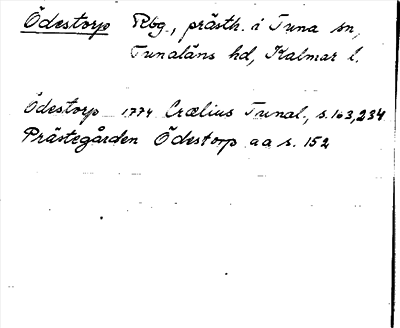 Ödestorp Rbg., prästh. i Tuna sn,
Tunaläns hd, Kalmar l.
Ödestorp 1774 Crælius Tunal., s. 163, 234
Prästegården Ödestorp aa s. 152